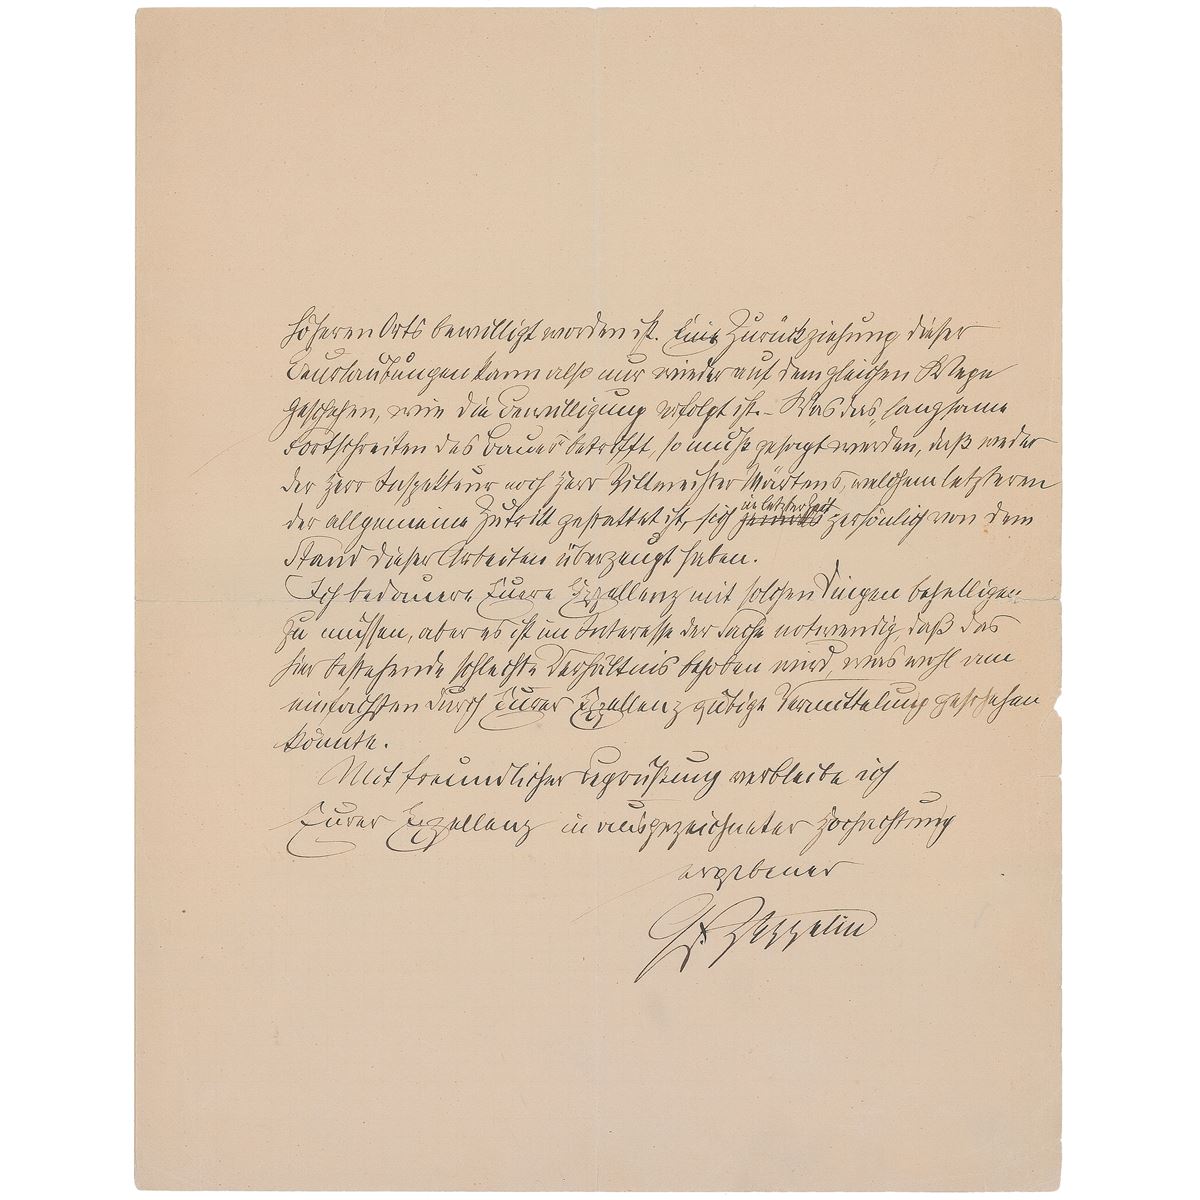 höheren Orts bewilligt worden ist. Eine Zurückziehung dieser
Beurlaubungen kann also nur wieder auf dem gleichen Wege
geschehen, wie die Bewilligung erfolgt ist. – Was das "langsame
Fortschreiten des Baues" betrifft, so muß gesagt werden, daß weder
der Herr Inspekteur noch Herr Rittmeister Märtens, welchem letzteren
der allgemeine Zutritt gestattet ist, sich in letzter Zeit persönlich von dem
Stand dieser Arbeiten überzeugt haben.
Ich bedauere Euere Exzellenz mit solchen Dingen behelligen
zu müssen, aber es ist im Interesse der Sache notwendig, daß das
hier bestehende schlechte Verhältnis behoben wird, was wohl am
einfachsten durch Eurer Exzellenz gütige Vermittelung geschehen
könnte.
Mit freundlicher Begrüßung verbleibe ich
Eurer Exzellenz in ausgezeichneter Hochachtung
ergebener
Gf. Zeppelin